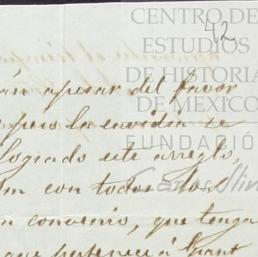 CENTRO DE
ESTUDIOS
DE HISTORIA
DE MÉXICO
FUNDACIÓN
42
án apesar del favor
pero la envidia se
logiado este arreglo,
m con todos los
n convenio, que tenga
que pertenece á Grant